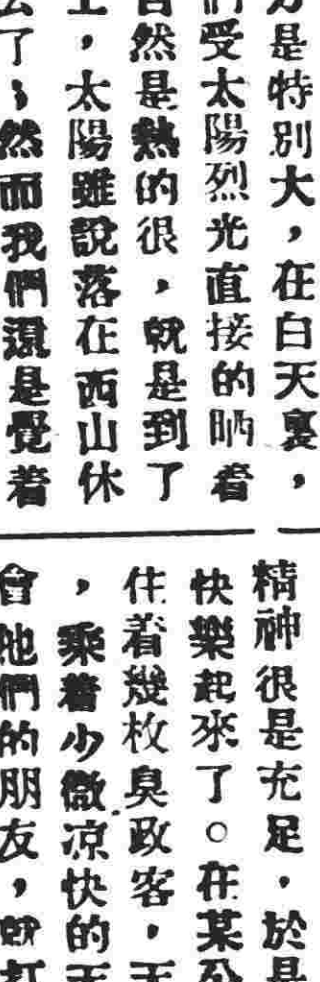 是特別大，在白天裏，
受太陽烈光直接的晒着
然是熱的很，就是到了
，太陽雖說落在西山休
了，然而我們還是覺着
精神很是充足，於是
快樂起來了。在某公
住着幾枚臭政客，天
，乘着少微凉快的天
會他們的朋友，就打